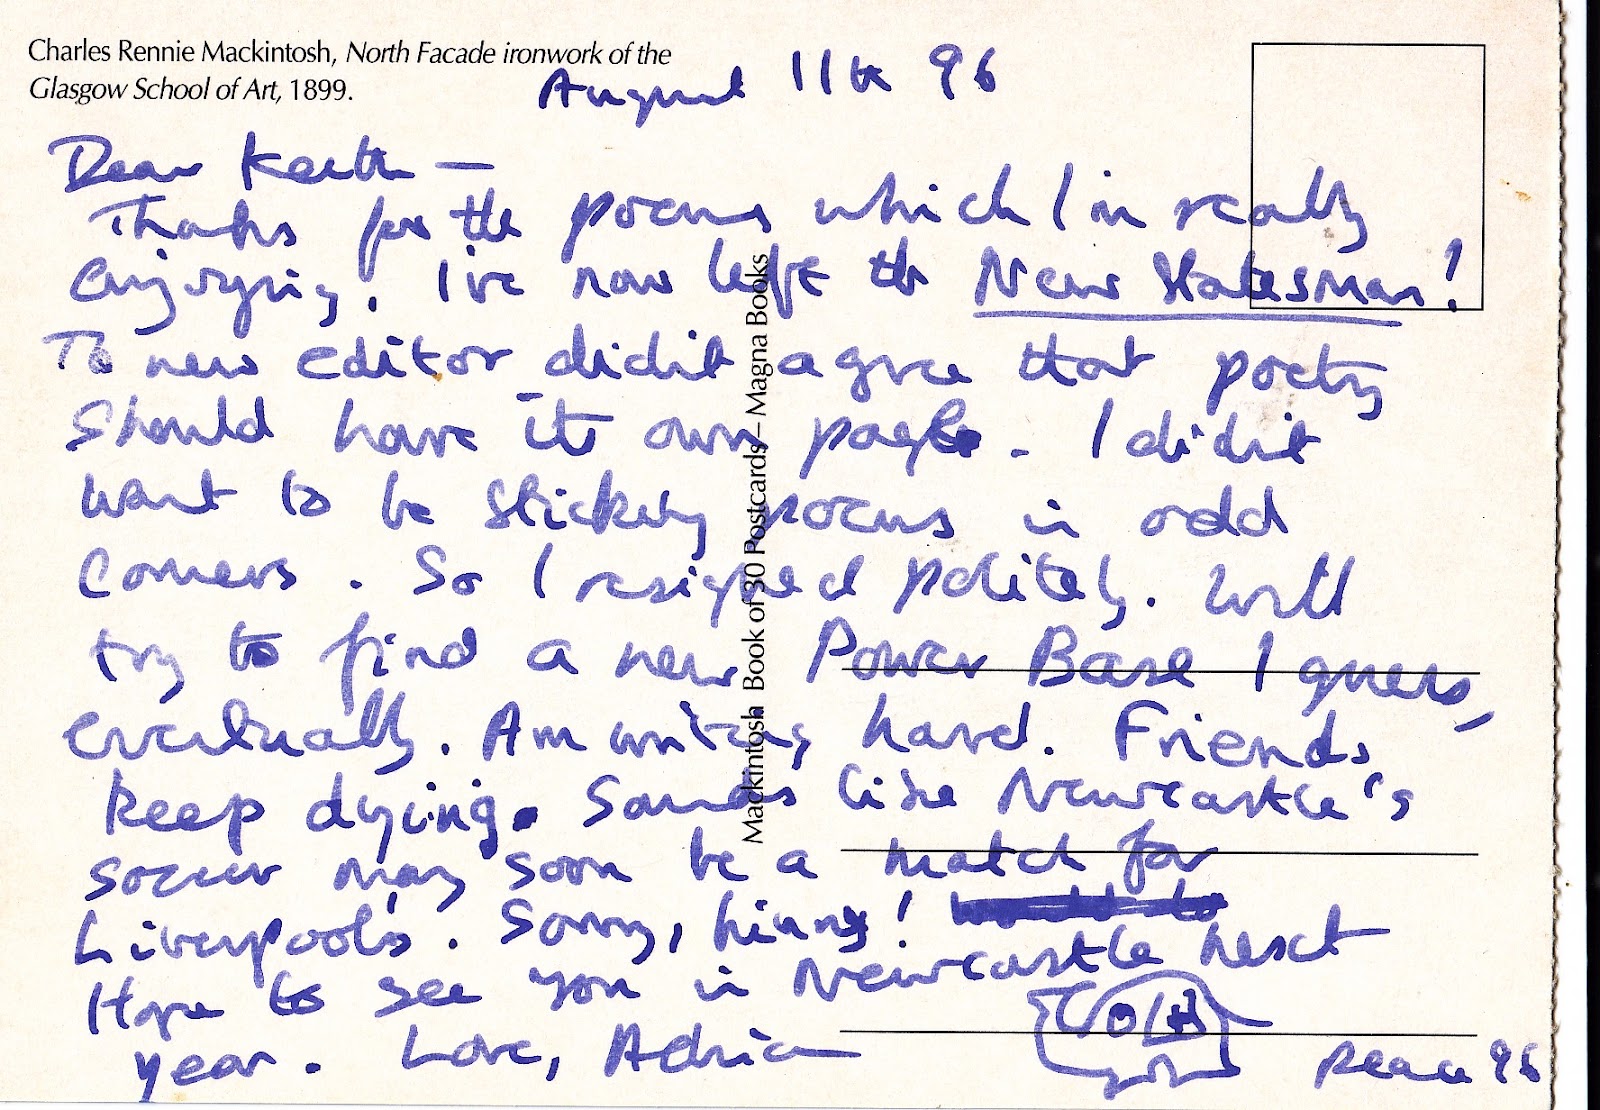 Charles Rennie Mackintosh, North Facade ironwork of the
Glasgow School of Art, 1899.
August 11th 96
Dear Keith —
Thanks for the poems which I'm really
enjoying. I've now left the New Statesman!
The new editor didn't agree that poetry
should have its own page. I didn't
want to be sticking poems in odd
corners. So I resigned politely. Will
try to find a new Power Base I guess,
eventually. Am writing hard. Friends
keep dying. Sounds like Newcastle's
soccer may soon be a match for
Liverpool's. Sorry, hinny!
Hope to see you in Newcastle next
year. Love, Adrian
Peace 96
Mackintosh Book of 30 Postcards – Magna Books